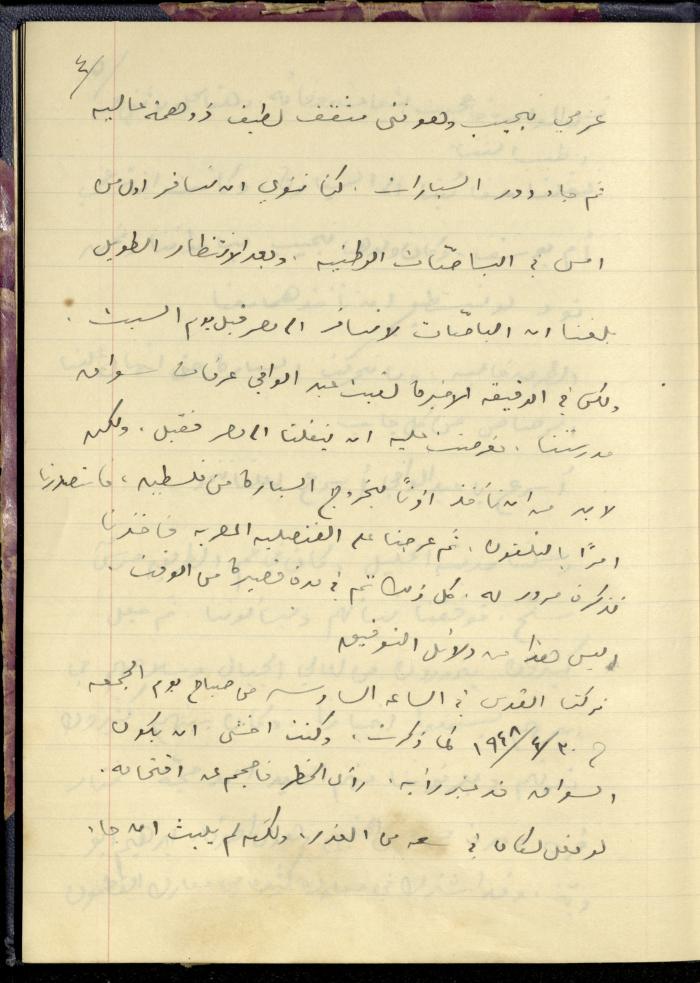 ٤/
عزمي نجيب وهو فتى مثقف لطيف ذو همة عاليه
ثم جاء دور السيارات. كنا ننوي ان نسافر اول من
امس في الباصّات الوطنيه. وبعد الانتظار الطويل
بلغنا ان الباصّات لا تسافر الى مصر قبل يوم السبت.
ولكن في الدقيقه الاخيرة لقيت عبد الوافي عرفات سواق
مدرستنا. فعرضت عليه ان ينقلنا الى مصر فقبل. ولكن
لا بد من ان نأخذ اذنًا بخروج السيارة من فلسطين، فاستصدرنا
امرًا بالتلفون. ثم عرجنا على القنصليه المصريه فأخذنا
تذكرة مرور له. كل ذلك تم في مدة قصيرة من الوقت
أليس هذا من دلائل التوفيق
تركنا القدس في الساعه السادسه من صباح يوم الجمعه
في ٣٠/٤/١٩٤٨ كما ذكرت، وكنت اخشى ان يكون
السواق قد غير رأيه. رأى الخطر فأحجم عن اقتحامه.
لو فعل لكان في سعه من العذر، ولكنه لم يلبث ان جاء